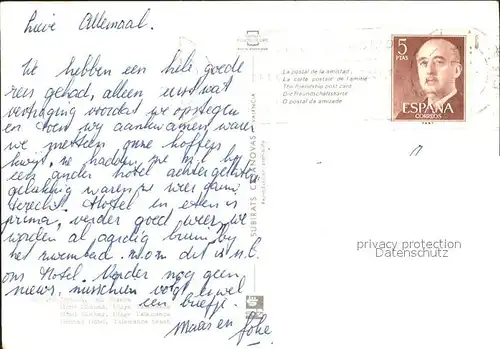 Lieve Allemaal.
We hebben een hele goede
reis gehad, alleen eerst wat
vertraging voordat we opstegen
en toen wij aankwamen, waren
we meteen onze koffers
kwijt, ze hadden ze nl. bij
een ander hotel achtergelaten
gelukkig waren ze weer gauw
terecht. Hotel en eten is
prima, verder goed weer, we
worden al aardig bruin bij
het zwembad. dit is n.l.
ons Hotel. Verder nog geen
nieuws, misschien volgt er wel
een briefje.
Maas en
SUBIRATS CASANOVAS VALENCIA
La postal de la amistad
La carte postale de l'amitié
The Friendship post card
Die Freundschaftskarte
O postal de amizade
5
PTAS
ESPAÑA
CORREOS
privacy protection
Datenschutz